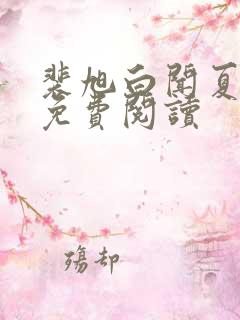 裴旭白聞夏
免費閱讀
殤却